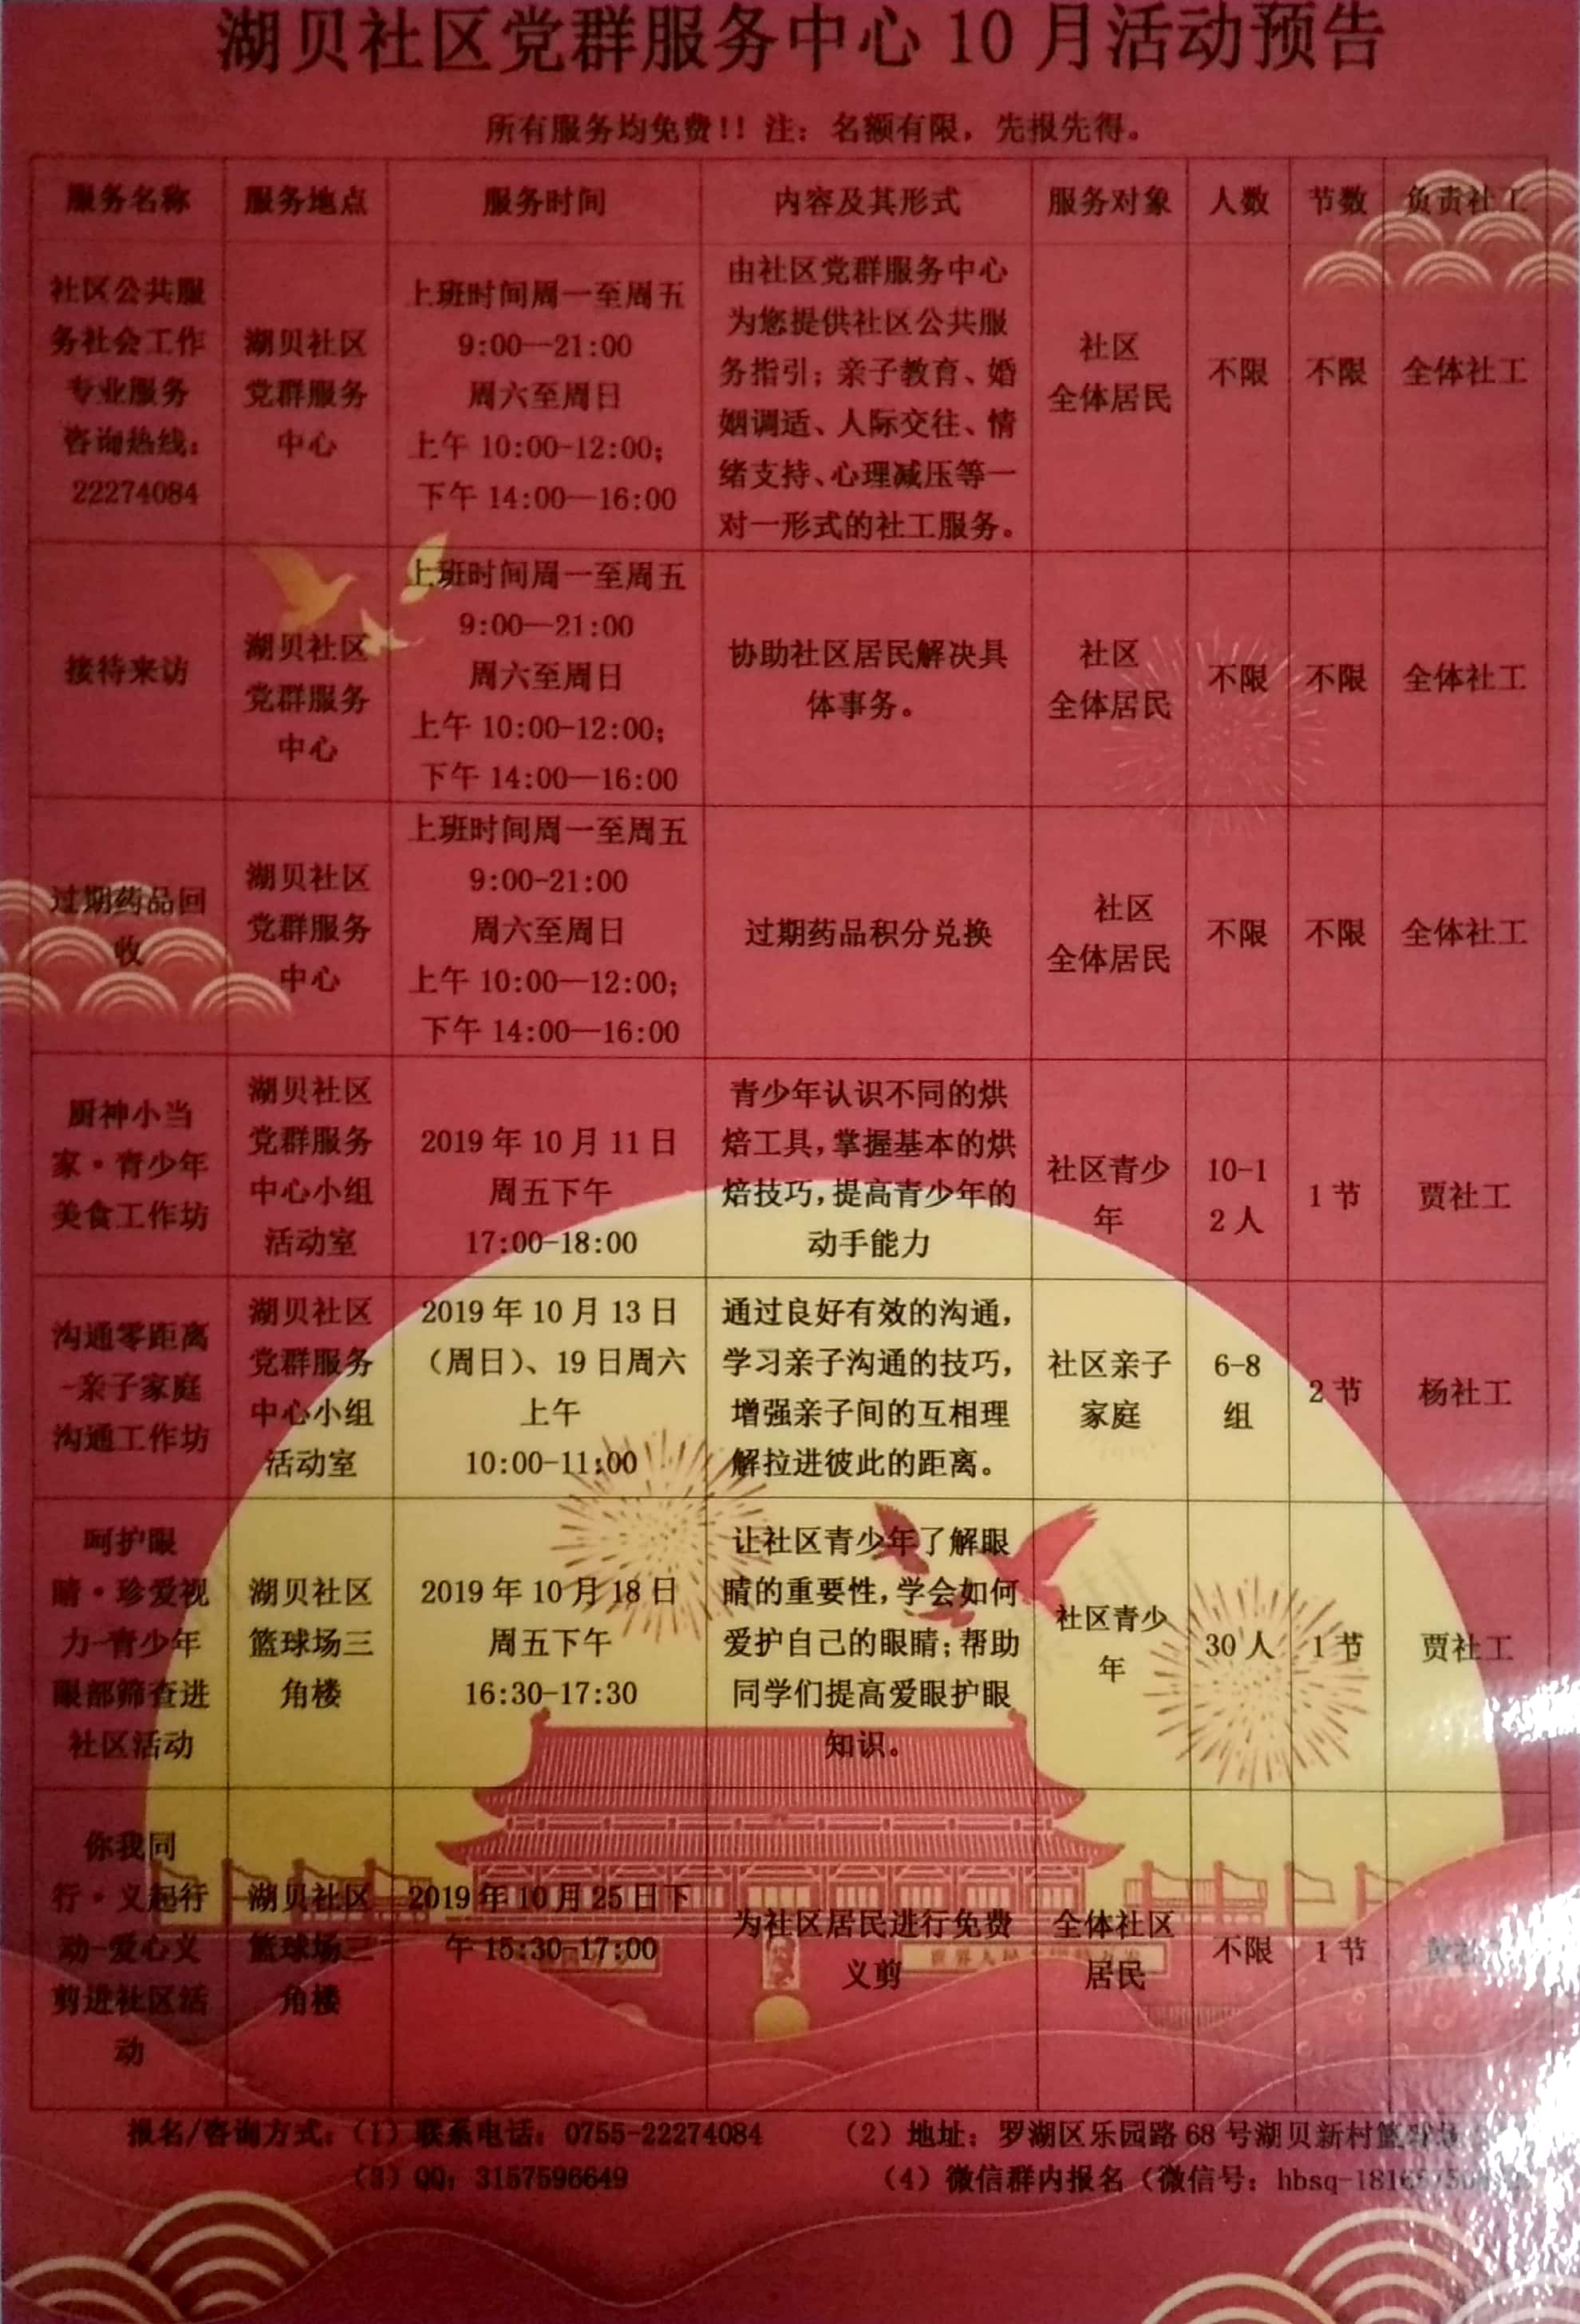 湖贝社区党群服务中心 10 月活动预告
所有服务均免费!! 注：名额有限，先报先得。
服务名称
服务地点
服务时间
内容及其形式
服务对象
人数
节数
负责社工
社区公共服
务社会工作
专业服务
咨询热线：
22274084
湖贝社区
党群服务
中心
上班时间周一至周五
9:00—21:00
周六至周日
上午 10:00-12:00；
下午 14:00—16:00
由社区党群服务中心
为您提供社区公共服
务指引；亲子教育、婚
姻调适、人际交往、情
绪支持、心理减压等一
对一形式的社工服务。
社区
全体居民
不限
不限
全体社工
接待来访
湖贝社区
党群服务
中心
上班时间周一至周五
9:00—21:00
周六至周日
上午 10:00-12:00；
下午 14:00—16:00
协助社区居民解决具
体事务。
社区
全体居民
不限
不限
全体社工
过期药品回
收
湖贝社区
党群服务
中心
上班时间周一至周五
9:00-21:00
周六至周日
上午 10:00—12:00；
下午 14:00—16:00
过期药品积分兑换
社区
全体居民
不限
不限
全体社工
厨神小当
家·青少年
美食工作坊
湖贝社区
党群服务
中心小组
活动室
2019 年 10 月 11 日
周五下午
17:00-18:00
青少年认识不同的烘
焙工具，掌握基本的烘
焙技巧，提高青少年的
动手能力
社区青少
年
10-1
2 人
1 节
贾社工
沟通零距离
-亲子家庭
沟通工作坊
湖贝社区
党群服务
中心小组
活动室
2019 年 10 月 13 日
（周日）、19 日周六
上午
10:00-11:00
通过良好有效的沟通，
学习亲子沟通的技巧，
增强亲子间的互相理
解拉进彼此的距离。
社区亲子
家庭
6-8
组
2 节
杨社工
呵护眼
睛·珍爱视
力-青少年
眼部筛查进
社区活动
湖贝社区
篮球场三
角楼
2019 年 10 月 18 日
周五下午
16:30-17:30
让社区青少年了解眼
睛的重要性，学会如何
爱护自己的眼睛；帮助
同学们提高爱眼护眼
知识。
社区青少
年
30 人
1 节
贾社工
你我同
行·义起行
动-爱心义
剪进社区活
动
湖贝社区
篮球场三
角楼
2019 年 10 月 25 日下
午 15:30-17:00
为社区居民进行免费
义剪
全体社区
居民
不限
1 节
报名/咨询方式：（1）联系电话：0755-22274084 （2）地址：罗湖区乐园路 68 号湖贝新村篮球场
（3）QQ：3157596649 （4）微信群内报名（微信号：hbsq-